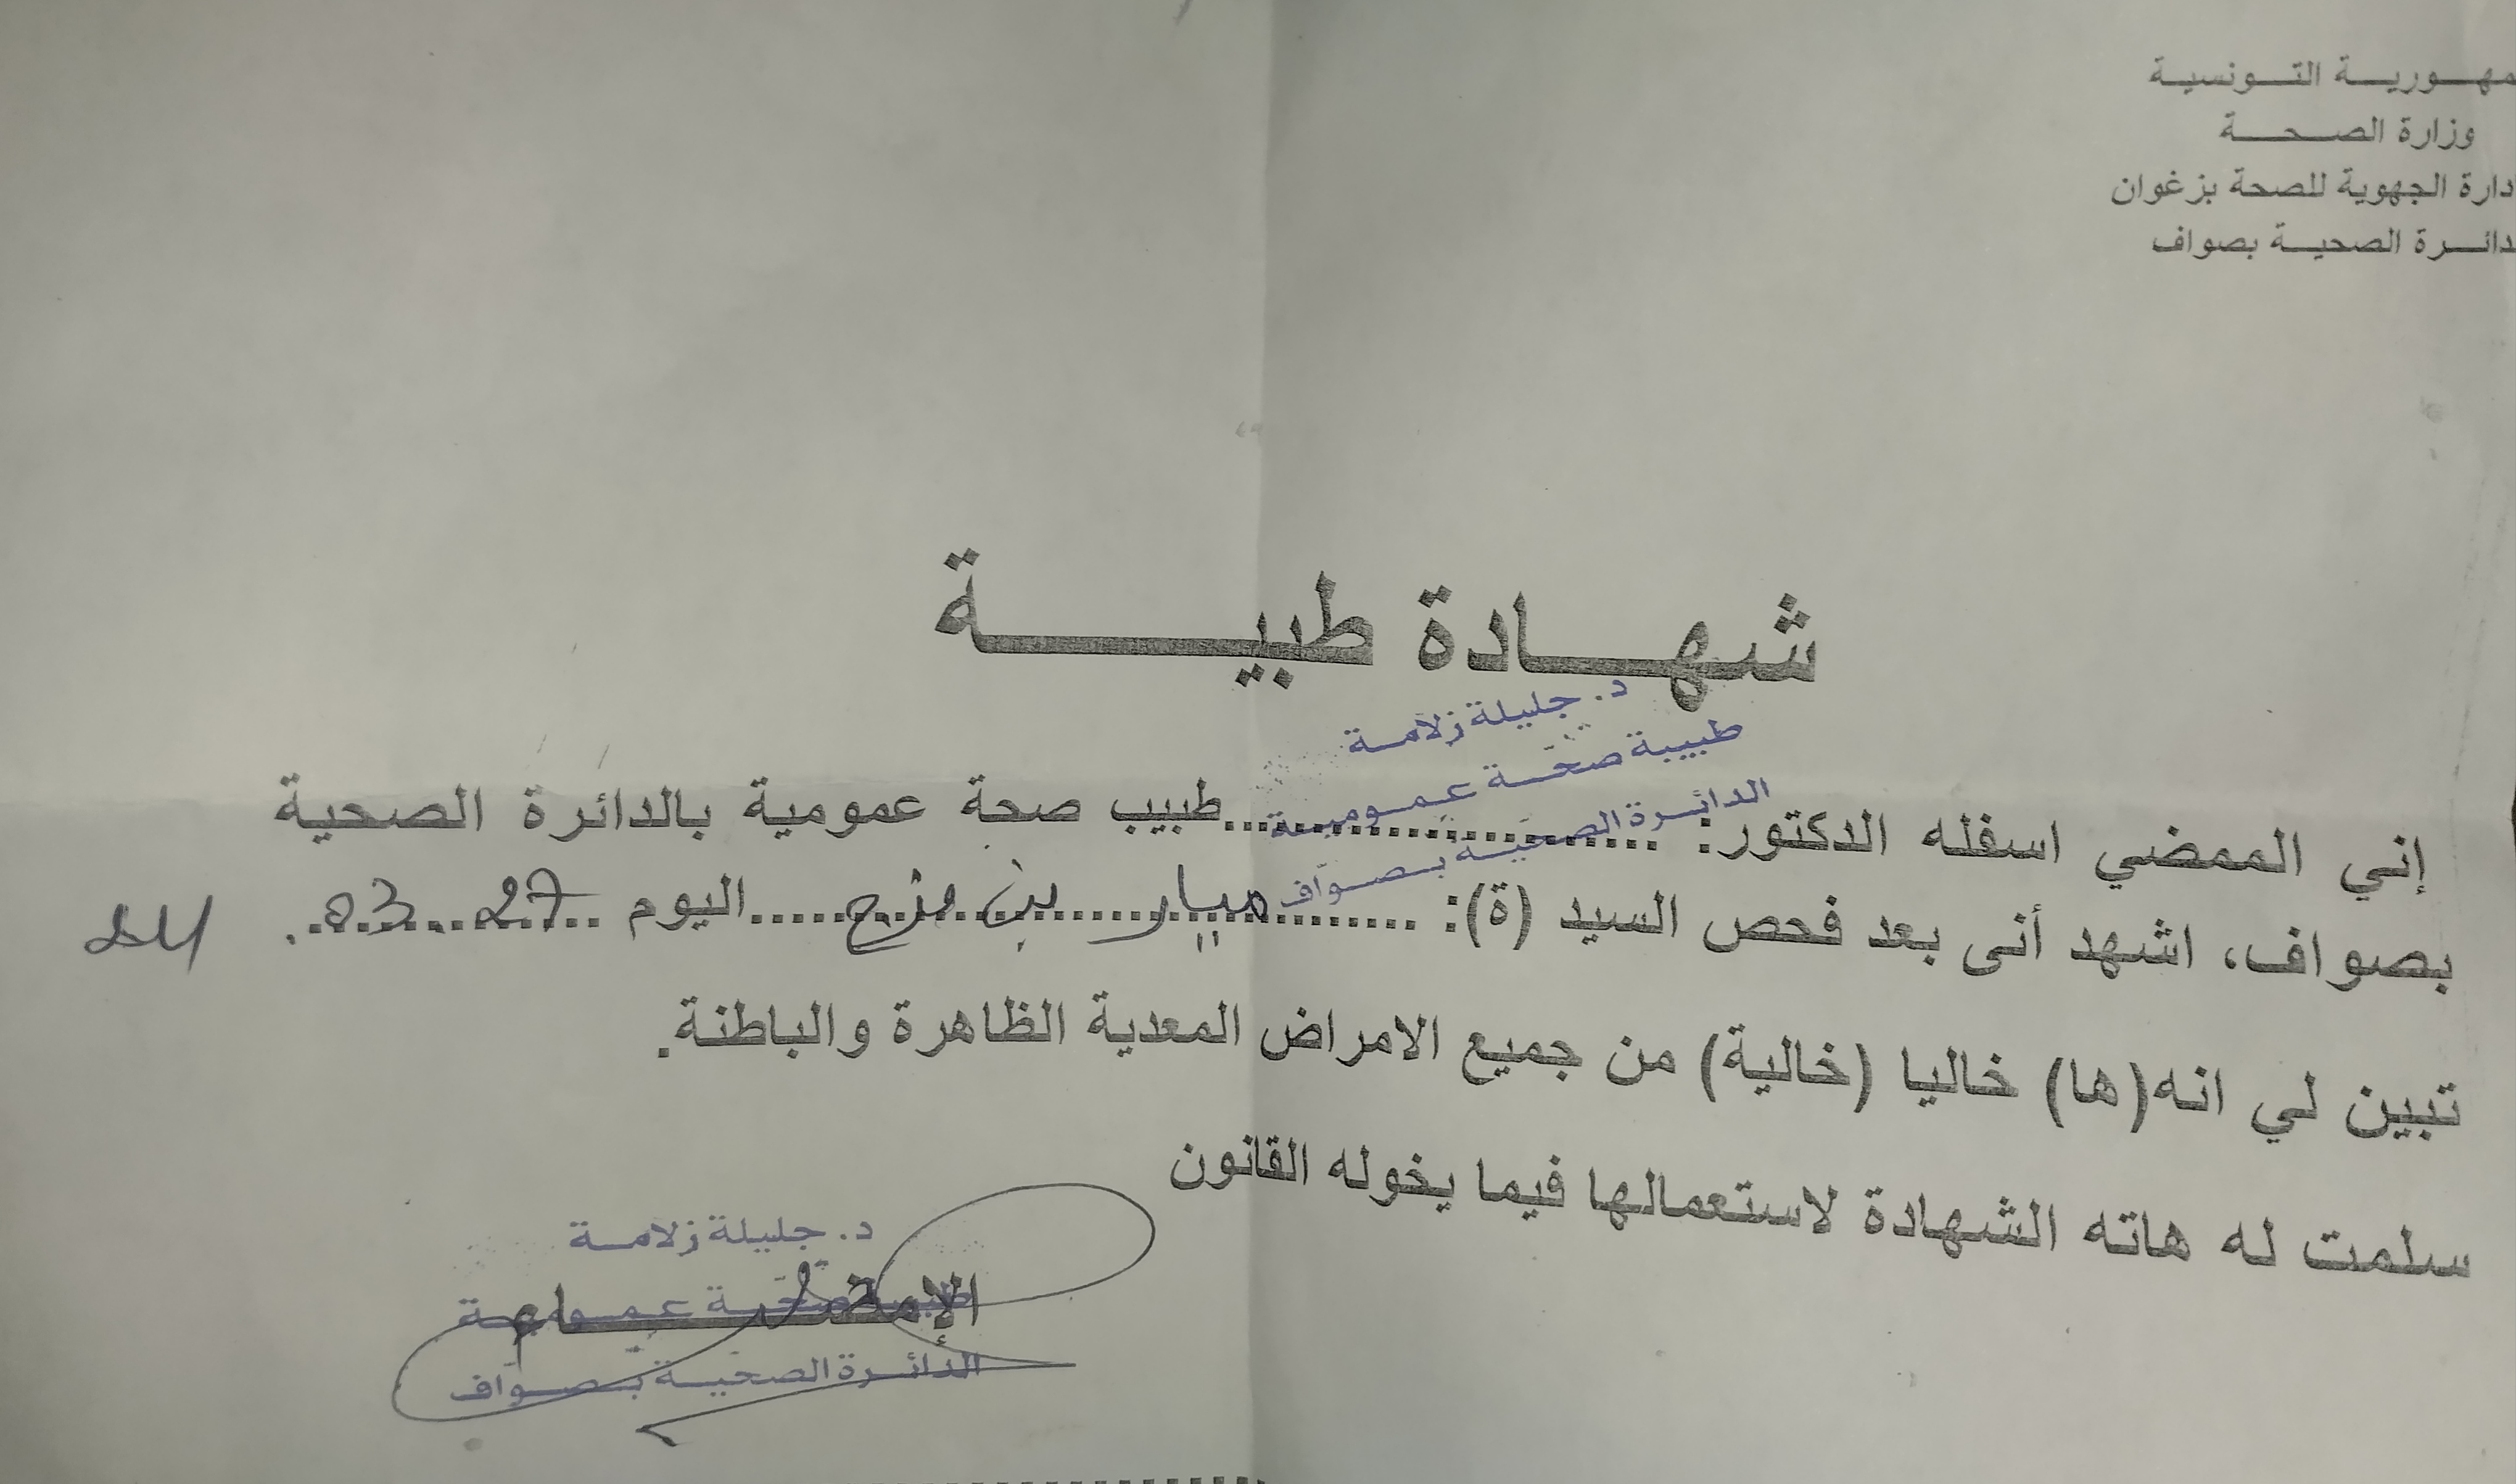 مهورية التونسية
وزارة الصحة
دارة الجهوية للصحة بزغوان
دائرة الصحية بصواف
شهادة طبية
د. جليلة زلامة
طبيبة صحة عمومية
الدائرة الصحية بصواف
إني الممضي اسفله الدكتور: طبيب صحة عمومية بالدائرة الصحية
بصواف، اشهد أنى بعد فحص السيد (ة): بن اليوم 27 03
تبين لي انه(ها) خاليا (خالية) من جميع الامراض المعدية الظاهرة والباطنة.
سلمت له هاته الشهادة لاستعمالها فيما يخوله القانون
د. جليلة زلامة
الإمضاء
طبيبة صحة عمومية
الدائرة الصحية بصواف